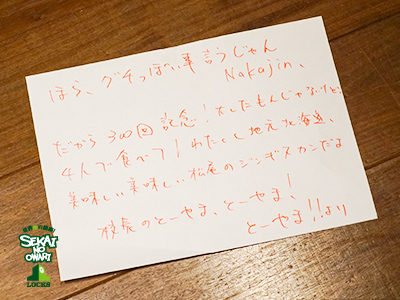 ほら、グチっぽい事言うじゃん
Nakajin、
だから300回記念！大したもんじゃないけど、
4人で食べて！わたくし地元北海道、
美味しい美味しい松尾のジンギスカンだよ
校長のとーやま、とーやま！
とーやま!!より
SEKAI
NO
OWARI
LOCKS